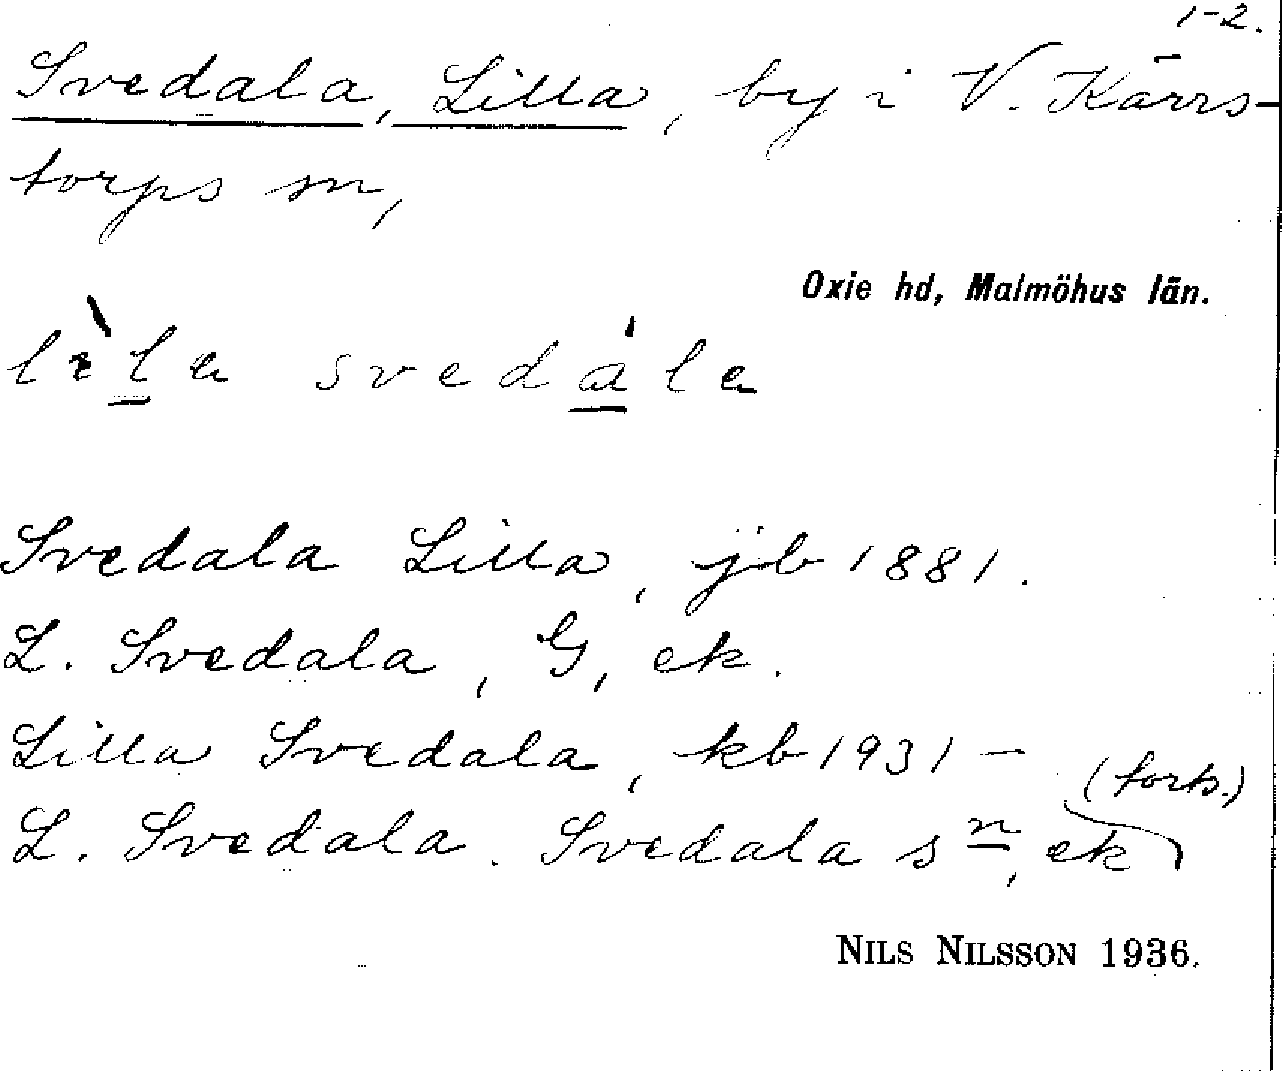 1-2.
Svedala, Lilla, by i V. Kärrs-
torps sn,
Oxie hd, Malmöhus län.
lìla svedála
Svedala Lilla, jb 1881.
L. Svedala, G, ek.
Lilla Svedala, kb 1931 –
(forts.)
L. Svedala. Svedala sn, ek
NILS NILSSON 1936.